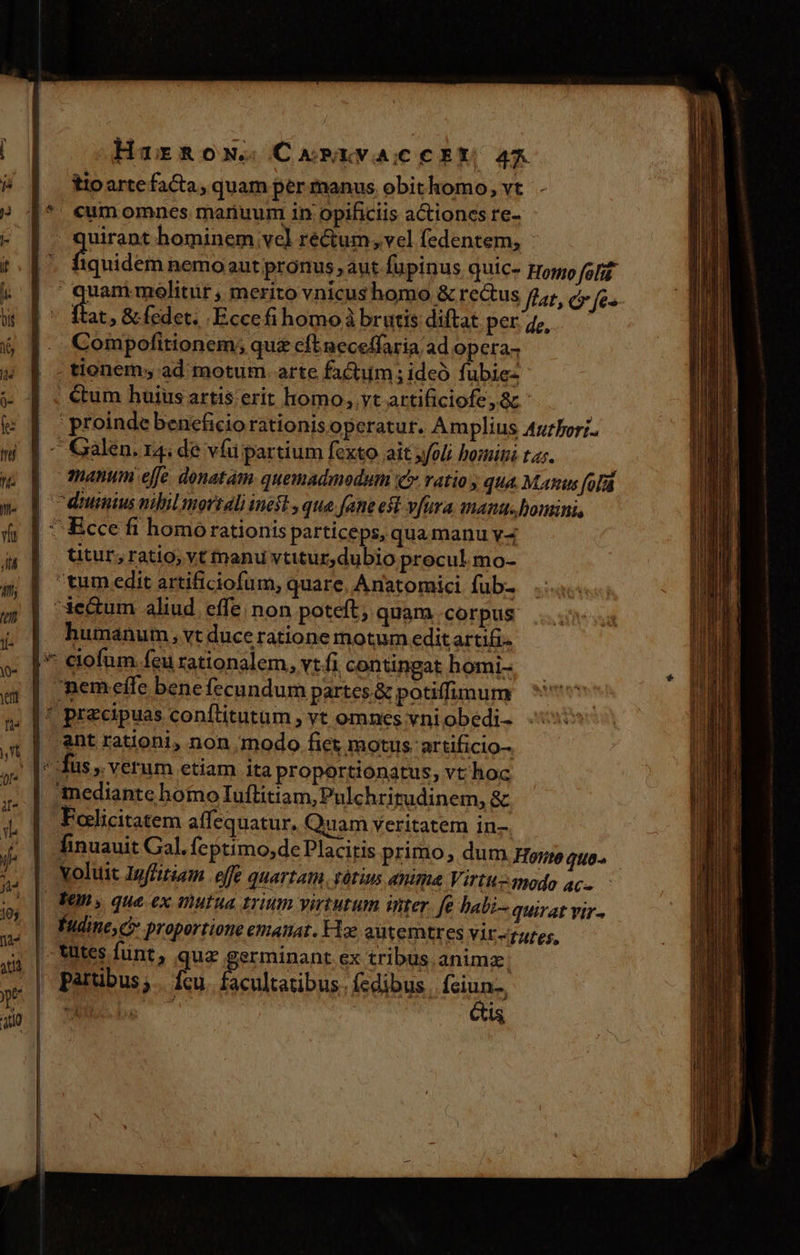 HIERON. CAPIVACCEI 47
tio artefacta, quam per manus obit homo, vt
cum omnes manuum in opificiis actiones re-
quirant hominem vel rectum, vel ſedentem,
ſiquidem nemo aut pronus, aut ſupinus quic-
quam molitur, merito vnicus homo & rectus
ſtat, & ſedet. Ecce ſi homo à brutis diſtat per
Compoſitionem, quæ eſt neceſſaria ad opera-
tionem, ad motum arte factum; ideò ſubie-
ctum huius artis erit homo, vt artificioſe, &
proinde beneficio rationis operatur. Amplius
Galen. 14. de vſu partium ſexto ait, ſoli homini
manum eſſe donatam quemadmodum & ratio, qua
diuinius nihil mortali ineſt, quæ ſane eſt vſura manu.
Ecce ſi homo rationis particeps, qua manu v-
titur, ratio, vt manu vtitur, dubio procul mo-
tum edit artificioſum, quare Anatomici ſub-
iectum aliud eſſe non poteſt, quam corpus
humanum, vt duce ratione motum edit artifi-
cioſum ſeu rationalem, vt ſi contingat homi-
nem eſſe bene ſecundum partes & potiſſimum
præcipuas conſtitutum, vt omnes vni obedi-
ant rationi, non modo fiet motus artificio-
ſus, verum etiam ita proportionatus, vt hoc
mediante homo Iuſtitiam, Pulchritudinem, &
Fœlicitatem aſſequatur. Quam veritatem in-
ſinuauit Gal. ſeptimo, de Placitis primo, dum
voluit Iuſtitiam eſſe quartam totius animæ Virtu-
tem, quæ ex mutua trium virtutum inter ſe habi-
tudine, & proportione emanat. Hæ autem tres vir-
tutes ſunt, quæ germinant ex tribus animæ
partibus, ſeu facultatibus, ſedibus ſeiun-
ctis
Homo ſolū
ſtat, & ſe-
det.
Authori-
tas.
Manus ſola
homini.
Homo quo-
modo ac-
quirat vir-
tutes.